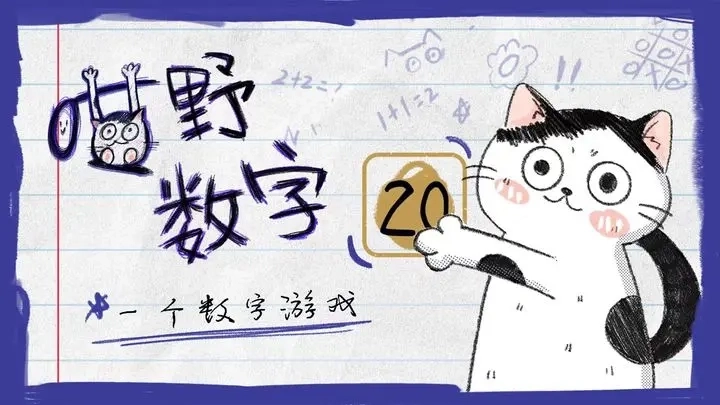 喵野
数字
一个数字游戏
20
2+2=
1+1=2
!!